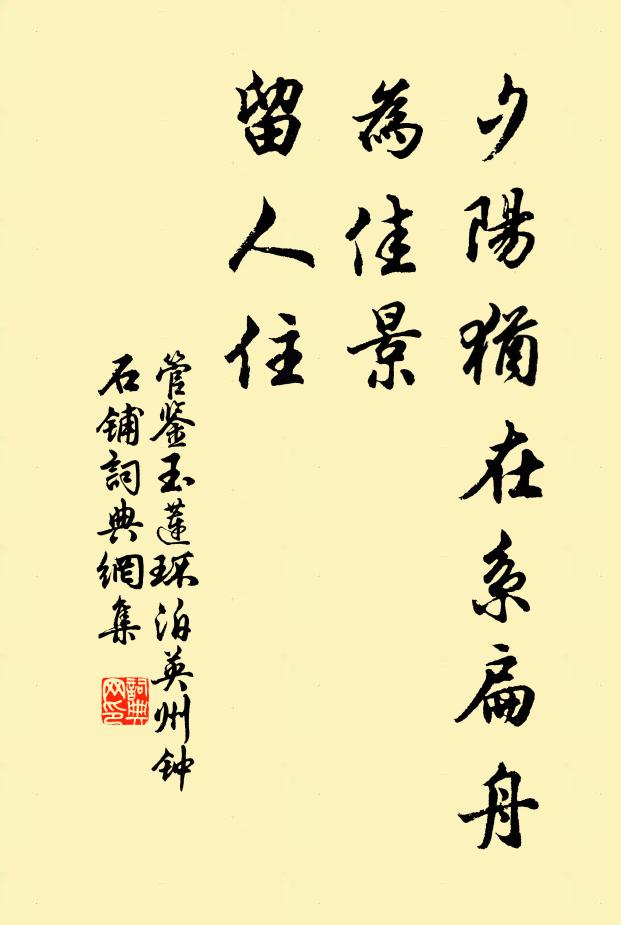 夕陽猶在系扁舟
為佳景
留人住
管鉴玉蓮环泊英州钟
石铺詞典網集
詞典
网印